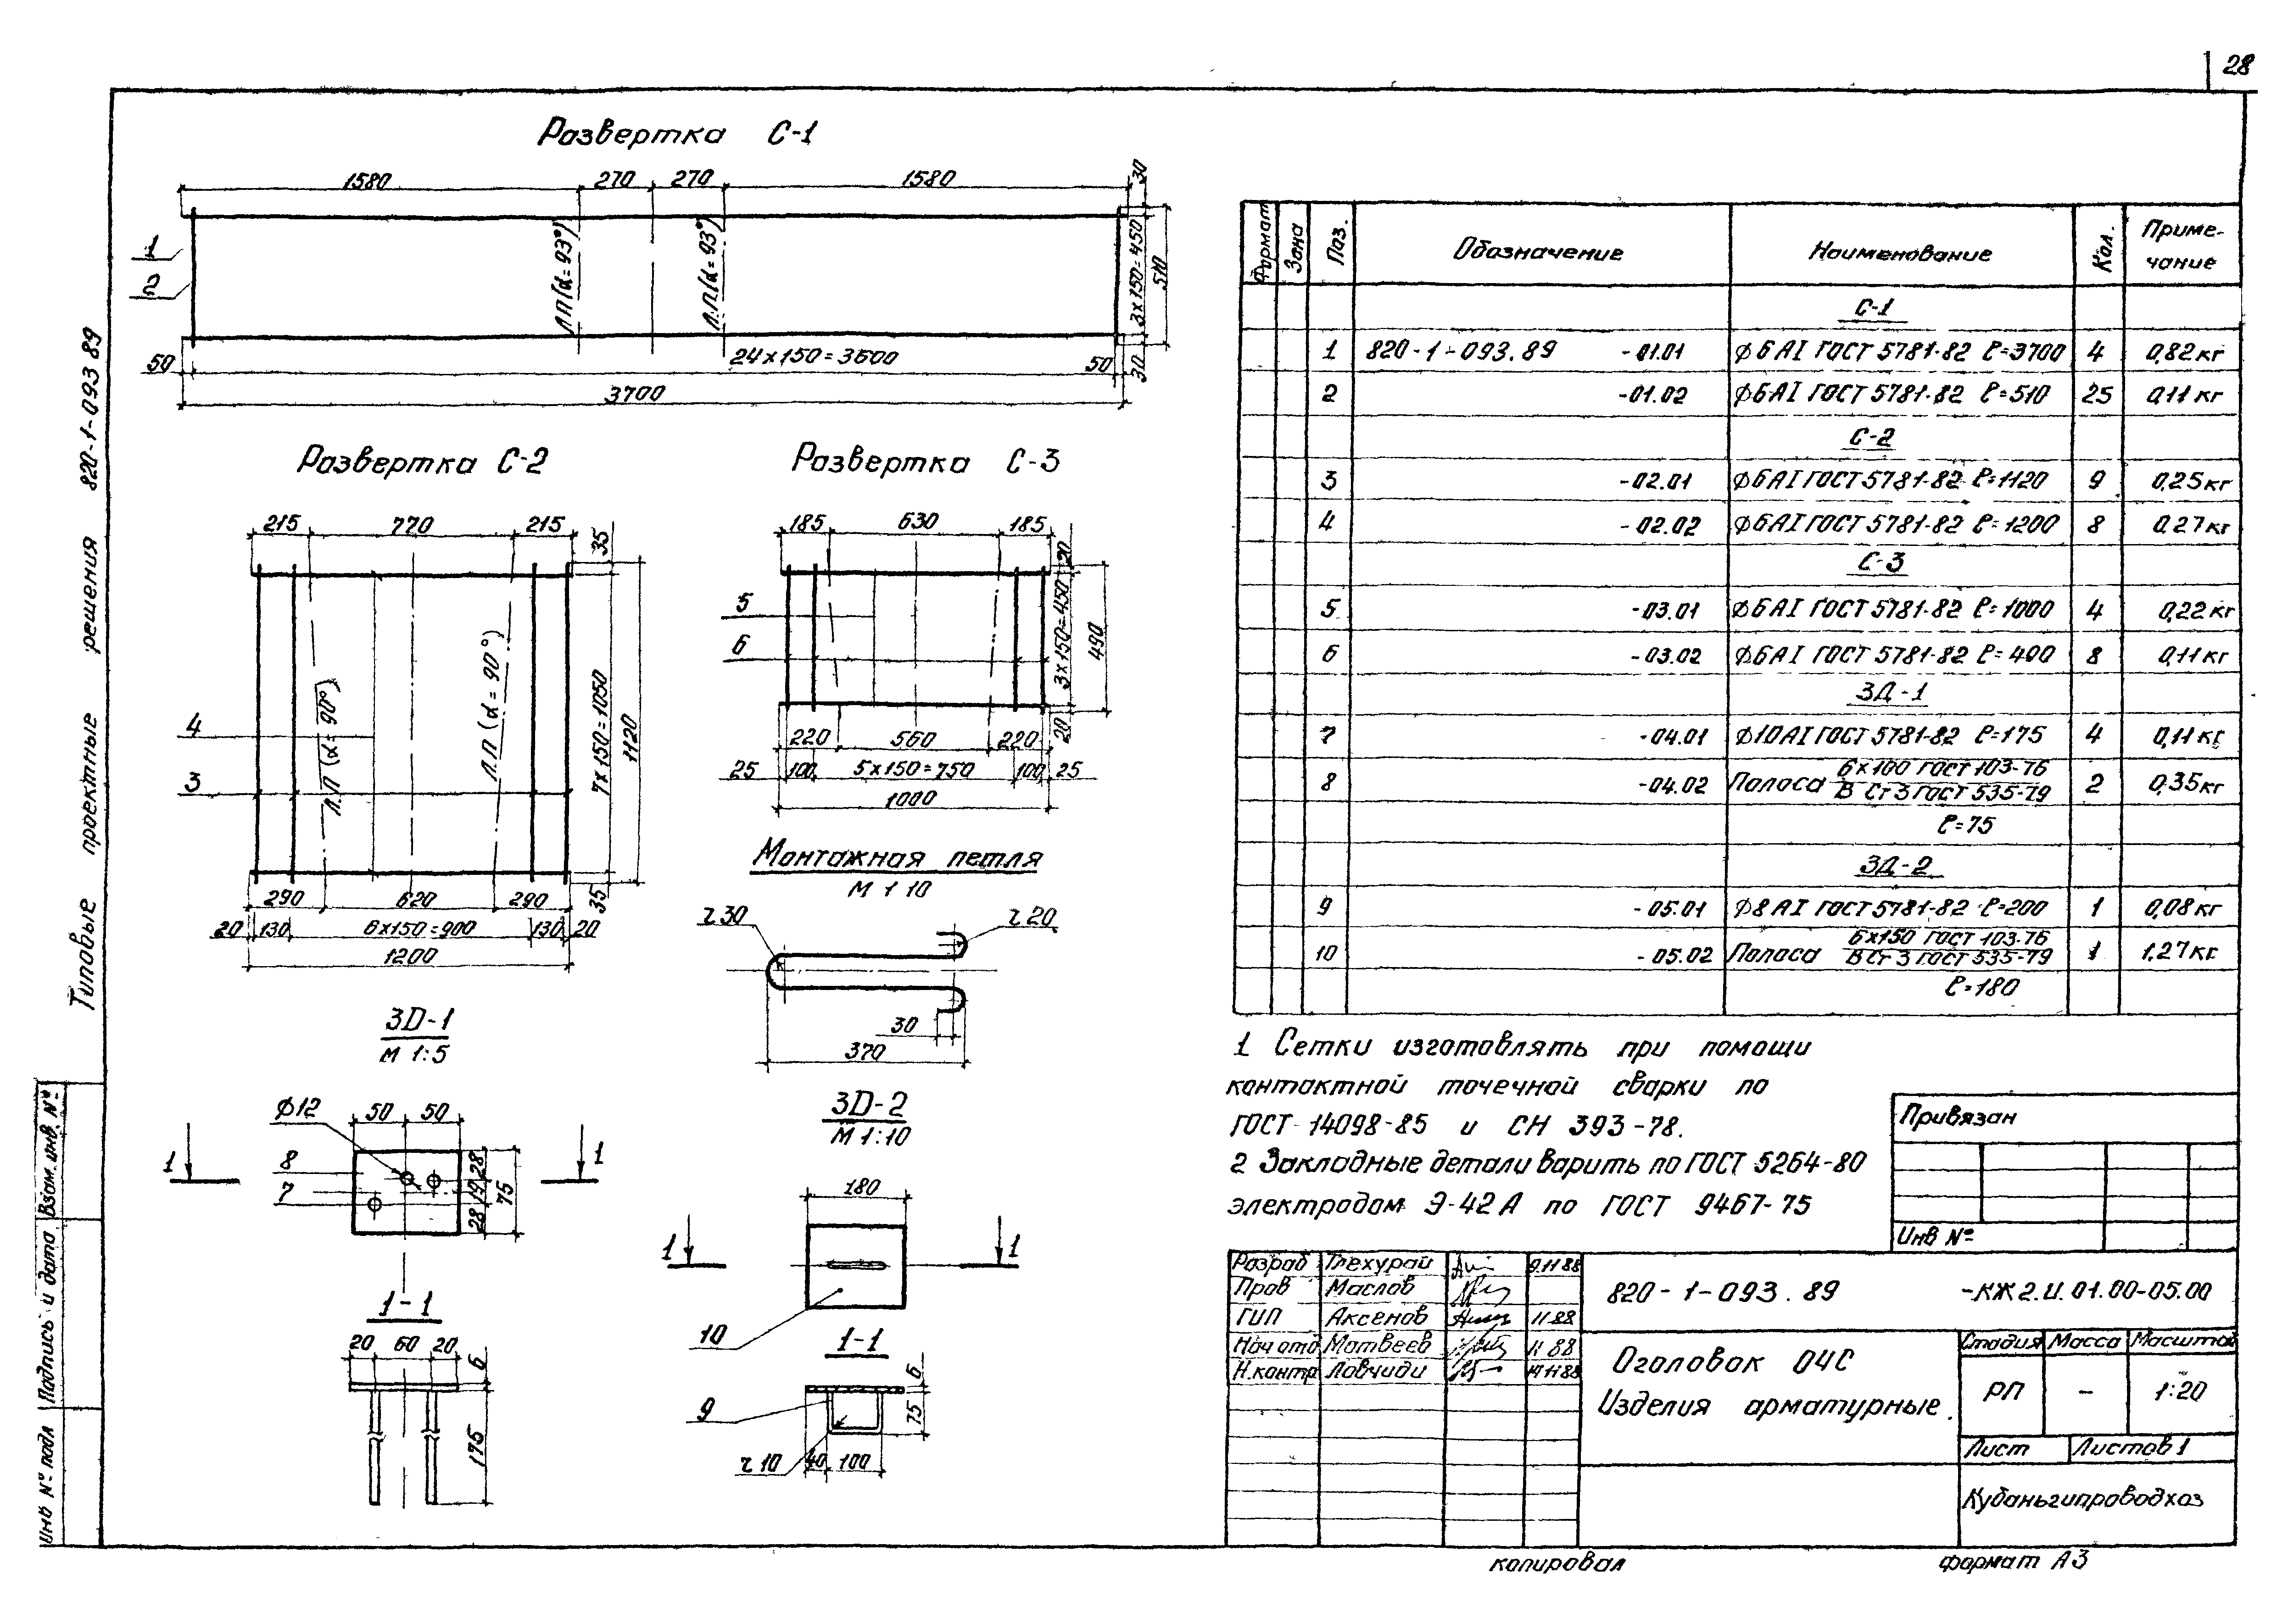 28
Типовые проектные решения 820-1-093 89
Инв № подл
Подпись и дата
Взам. инв. №
Развертка С-1
1580 270 270 1580 30
1
2
Л П (α = 93°)
Л.П. (α = 93°)
3х150=450
510
50 24х150=3600 50 30
3700
Развертка С-2
215 770 215 35
4
3
Л.П (α = 90°)
Л.П (α = 90°)
7х150=1050
1120
290 620 290 35
20 130 6х150=900 130 20
1200
Развертка С-3
185 630 185 20
5
6
3х150=450
490
220 560 220 20
25 100 5х150=750 100 25
1000
Монтажная петля
М 1 10
r 30
r 20
30
370
ЗD-1
М 1:5
ф12 50 50
1 1
8
7
28
19
28
75
1-1
20 60 20 6
175
ЗD-2
М 1:10
180
1 1
10
1-1
6
9
75
r 10 40 100
Формат Зона Поз. Обозначение Наименование Кол. Приме-
чание
С-1
1 820-1-093.89 -01.01 ф6АI ГОСТ 5781-82 ℓ=3700 4 0,82кг
2 -01.02 ф6АI ГОСТ 5781-82 ℓ=510 25 0,11кг
С-2
3 -02.01 ф6АI ГОСТ 5781-82 ℓ=1120 9 0,25кг
4 -02.02 ф6АI ГОСТ 5781-82 ℓ=1200 8 0,27кг
С-3
5 -03.01 ф6АI ГОСТ 5781-82 ℓ=1000 4 0,22кг
6 -03.02 ф6АI ГОСТ 5781-82 ℓ=490 8 0,11кг
ЗД-1
7 -04.01 ф10АI ГОСТ 5781-82 ℓ=175 4 0,11кг
8 -04.02 Полоса 6х100 ГОСТ 103-76 2 0,35кг
В Ст 3 ГОСТ 535-79
ℓ=75
ЗД-2
9 -05.01 ф8АI ГОСТ 5781-82 ℓ=200 1 0,08кг
10 -05.02 Полоса 6х150 ГОСТ 103-76 1 1,27кг
В Ст 3 ГОСТ 535-79
ℓ=180
1 Сетки изготовлять при помощи
контактной точечной сварки по
ГОСТ 14098-85 и СН 393-78.
2 Закладные детали варить по ГОСТ 5264-80
электродом Э-42А по ГОСТ 9467-75
Привязан
Инв №
Разраб Тлехурай 9.11 88
Пров Маслов
ГИП Аксенов 11 88
Нач отд Матвеев 11 88
Н.контр Ловчиди 11 88
820-1-093.89 -КЖ2.И.01.00-05.00
Оголовок ОЧС
Изделия арматурные.
Стадия Масса Масштаб
РП - 1:20
Лист Листов 1
Кубаньгипроводхоз
копировал формат А3